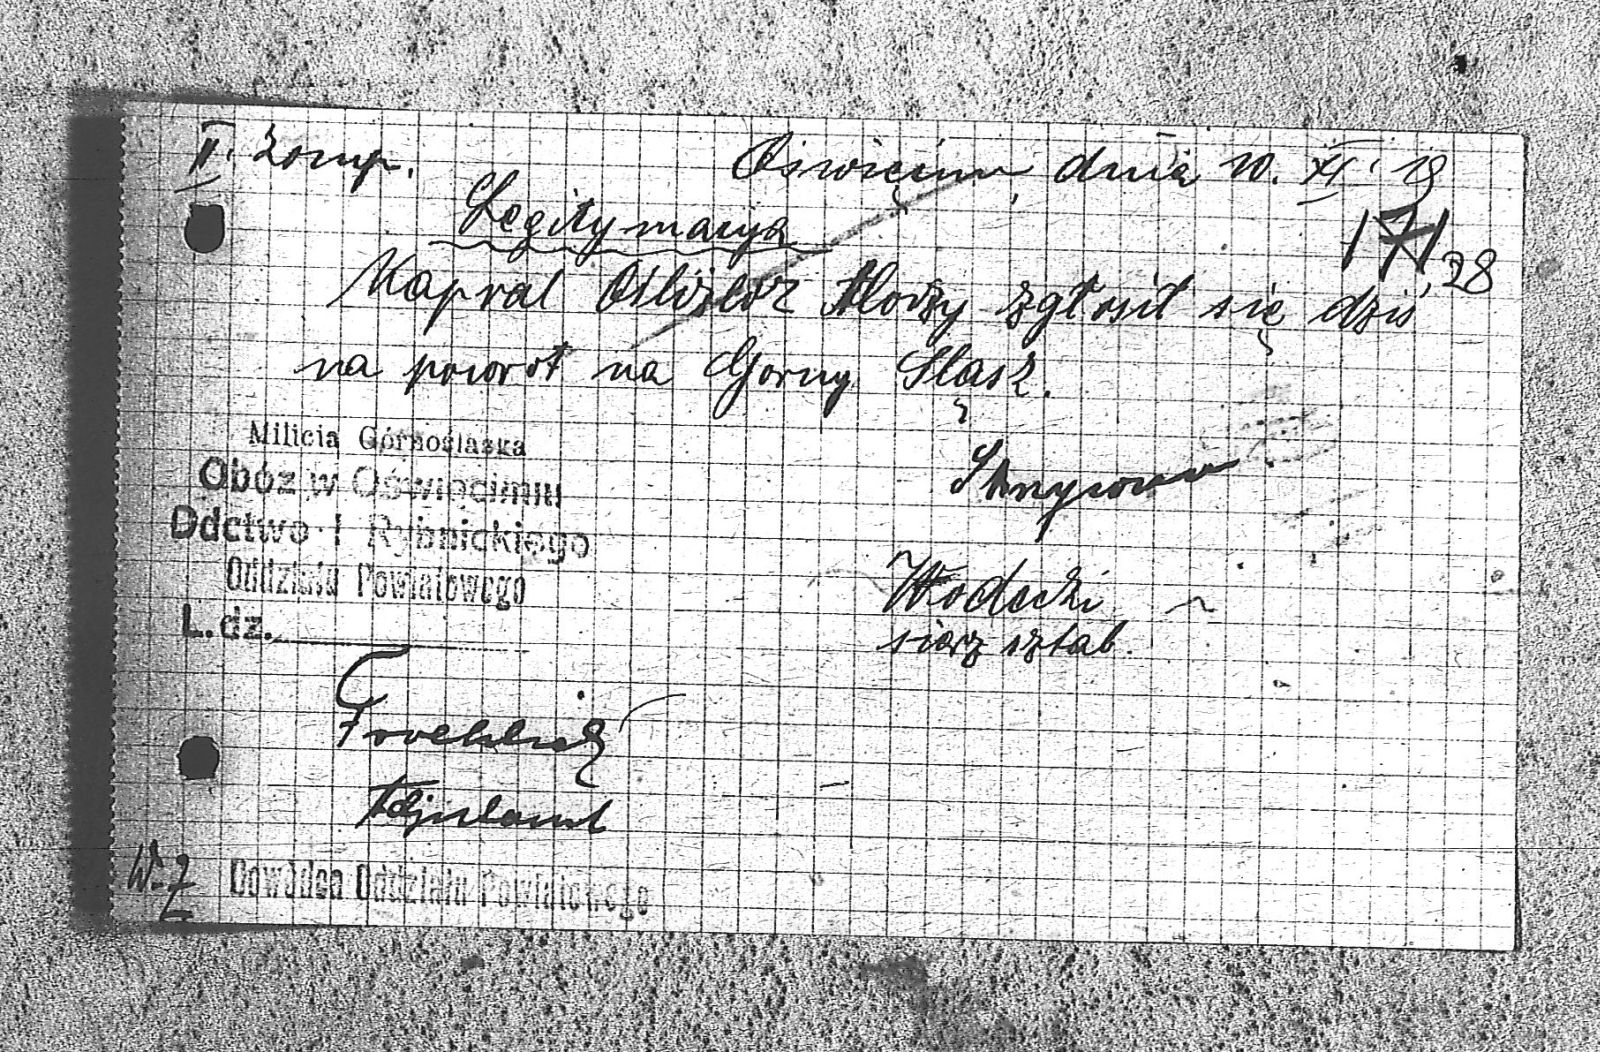 II. komp. Oświęcim, dnia 10. XI. 19
Legitymacyja
171/28
Kapral Oślizlok Alojzy zgłosił się dziś
na powrot na Gorny Śląsk.
Milicia Górnośląska
Obóz w Oświęcimiu
Ddctwo I Rybnickiego
Oddziału Powiatowego
L. dz.
Włodecki
sierz sztab.
Froehlich
Adjutant
W. Z Dowódca Oddziału Powiatowego